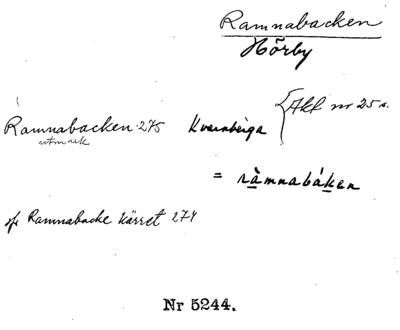 Ramnabacken
Hörby
Akt nr 25 a.
Ramnabacken 275 Kvarnberga
utmark
= ràmnabáken
jfr Ramnabacke kärret 274
Nr 5244.